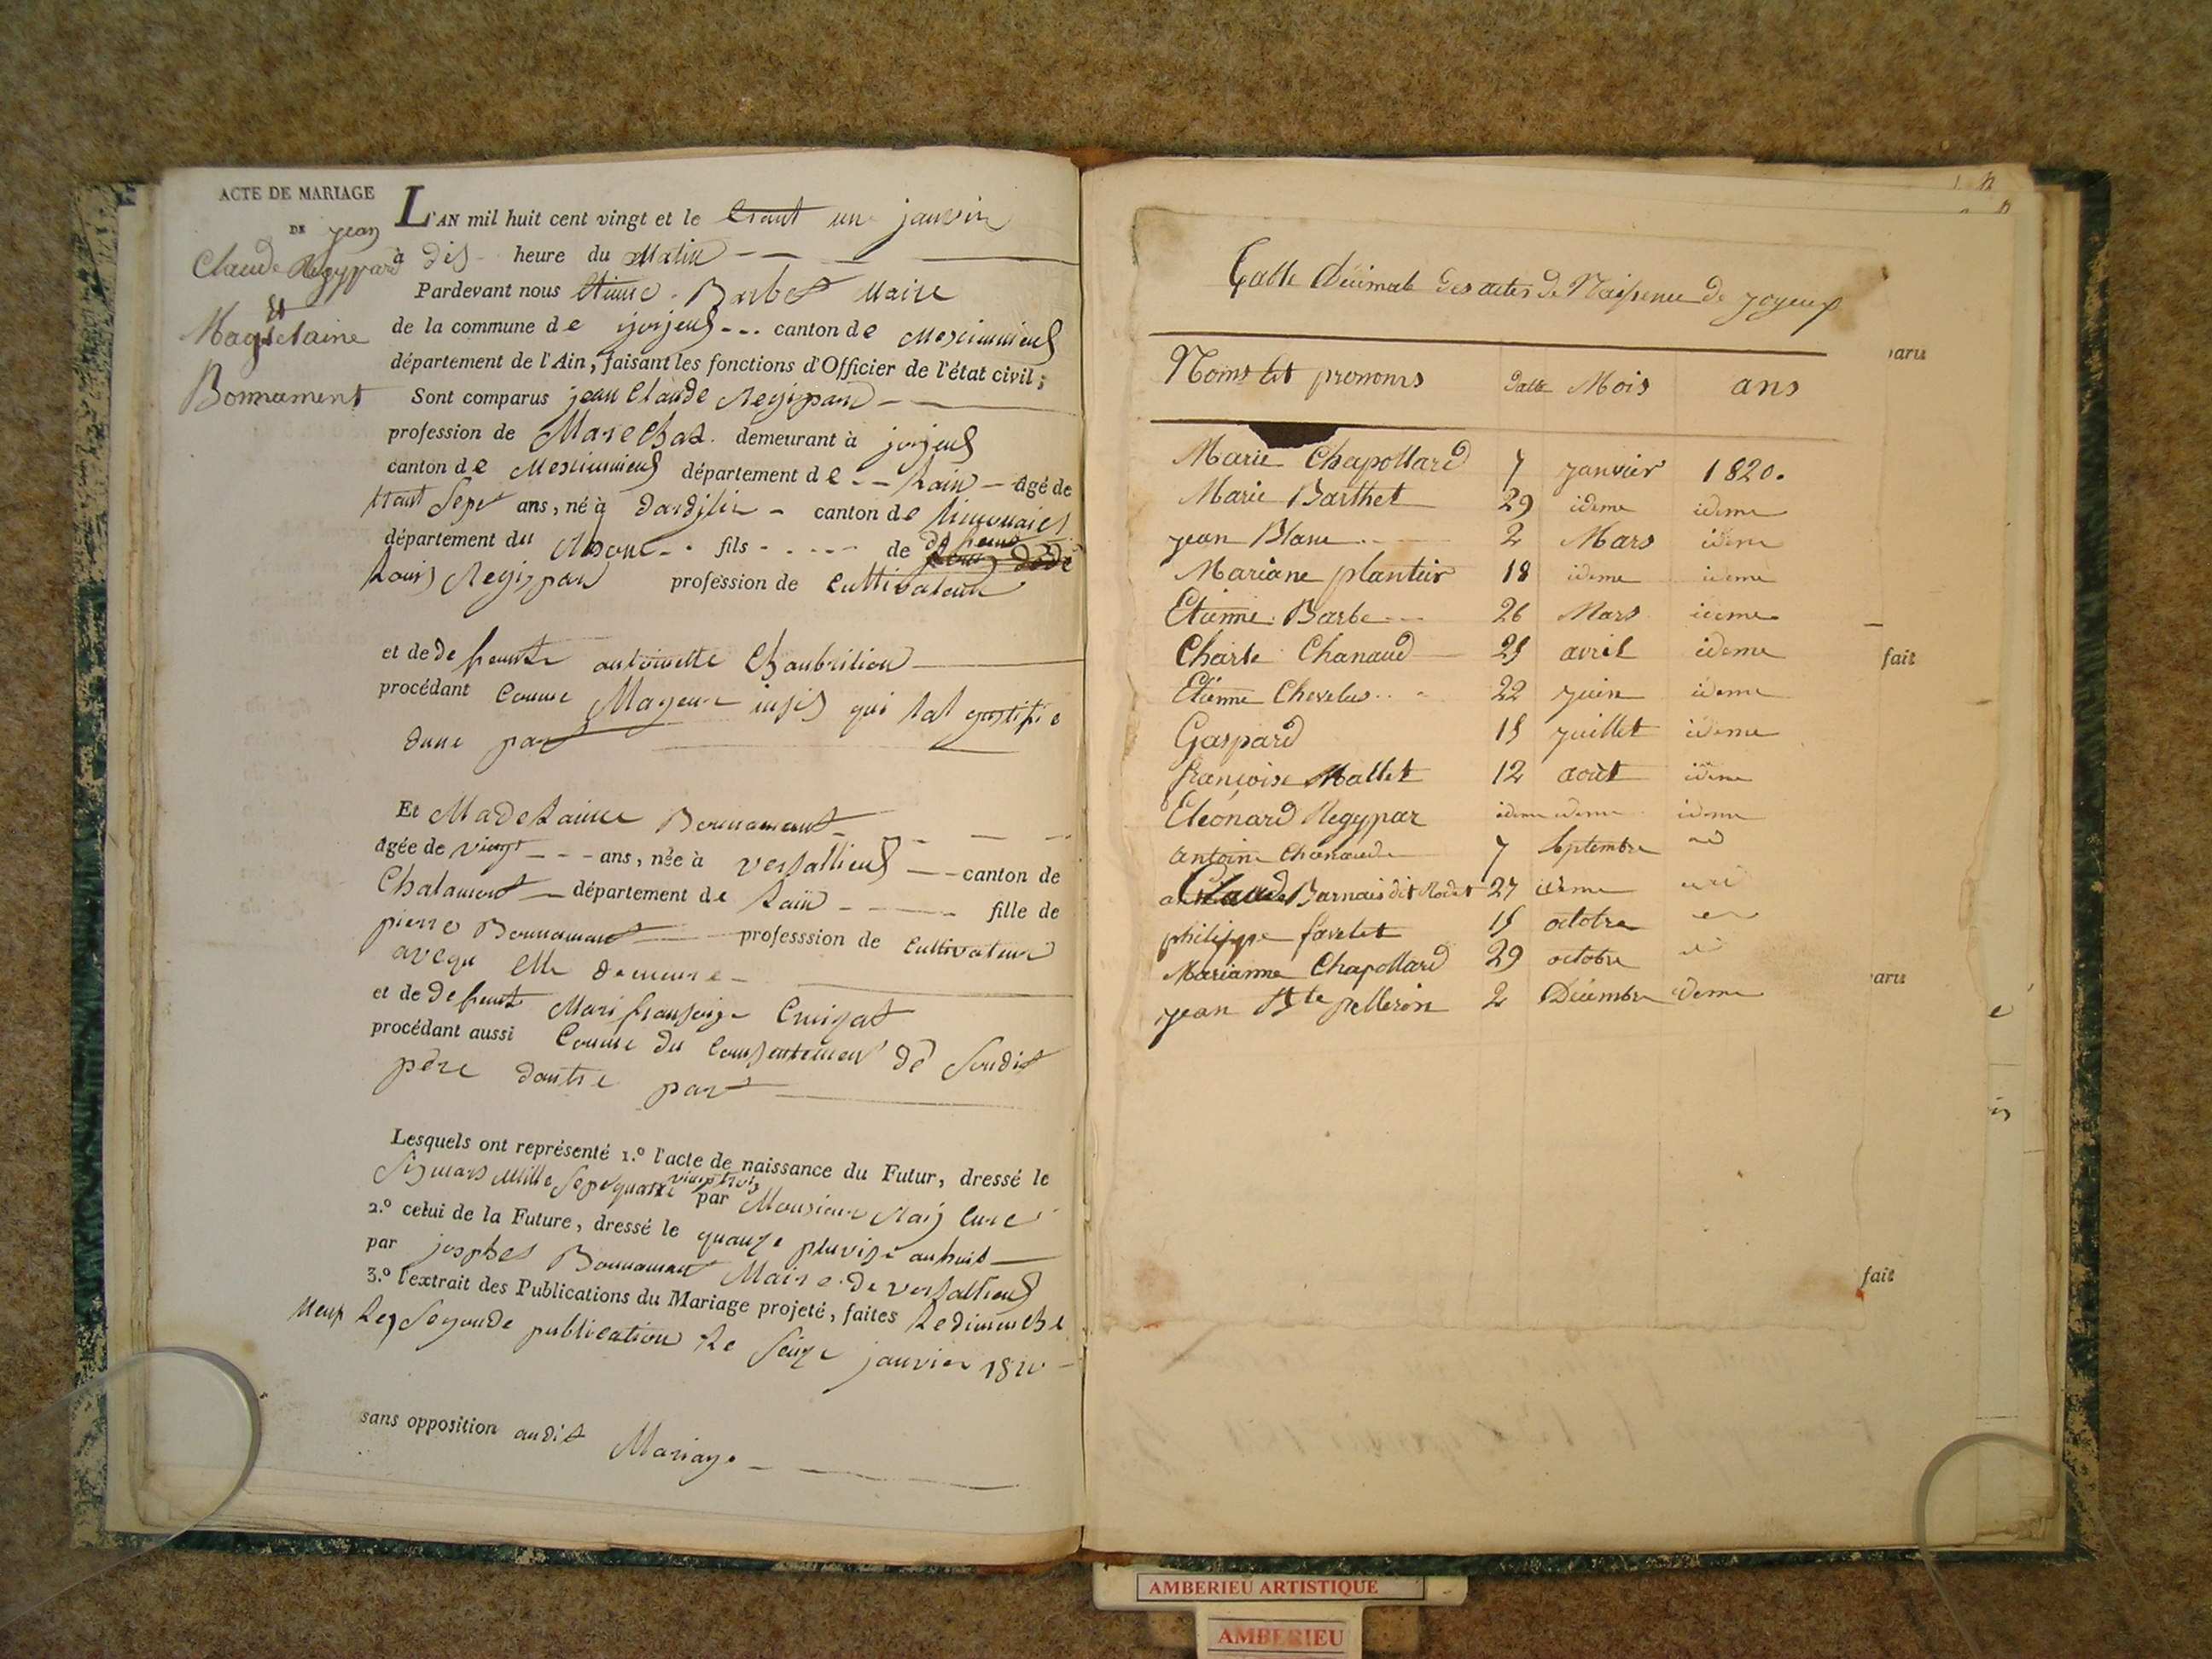 ACTE DE MARIAGE
DE jean
Claude Regypard
et
Magdelaine
Bonnament
L'AN mil huit cent vingt et le trant un janvier
à dis heure du Matin
Pardevant nous Etienne Barbet Maire
de la commune de jojeus canton de Meximieus
département de l'Ain, faisant les fonctions d'Officier de l'état civil;
Sont comparus jean Claude Regipard
profession de Marechal demeurant à jojeus
canton de Meximieus département de Lain âgé de
trant Sept ans, né à dardilir canton de limonaies
département du Rhone fils de defeunt
Louis Regipar profession de Cultivateur
et de defeunte antoinette Chaubrilion
procédant Comme Mageur insis qui lat justifie
dune part
Et Madelainne Bonnament
âgée de vingt ans, née à versallieus canton de
Chalamont département de Lain fille de
pierre Bonnamant professsion de Cultivateur
aveque elle demeure
et de defeunte Mari fransoise Cruizat
procédant aussi Comme du Consentement de Sondit
père dautre part
Lesquels ont représenté 1.º l'acte de naissance du Futur, dressé le
Sis mars Mille Sept quatre vingt trois par Monsieur Curé
2.º celui de la Future, dressé le pluvise an huit
par josphes Bonnamant Maire de versallieus
3.º l'extrait des Publications du Mariage projeté, faites Le dimenche
neuf Segonde publication Le Seize janvier 1820
sans opposition audit Mariage
Table Décimale des actes de Naissence de joyeux
Noms et prenoms Date Mois ans
Marie Chapollard 7 janvier 1820.
Marie Barthet 29 ideme ideme
jean Blanc 2 Mars ideme
Mariane plantier 18 ideme ideme
Etienne Barbe 26 Mars ideme
Charle Chanaud 25 avril ideme
Etienne Chevelus 22 juin ideme
Gaspard 15 juillet ideme
françoise Mallet 12 août ideme
Eléonard Regypar ideme ideme ideme
antoine Chanaud 7 Septembre id
Claude Barnais dit Rodet 27 ideme id
philippe favelet 15 octobre id
Marianne Chapollard 29 octobre id
jean Bte pelleron 2 Décembre ideme
aru
fait
aru
fait
AMBERIEU ARTISTIQUE
AMBERIEU